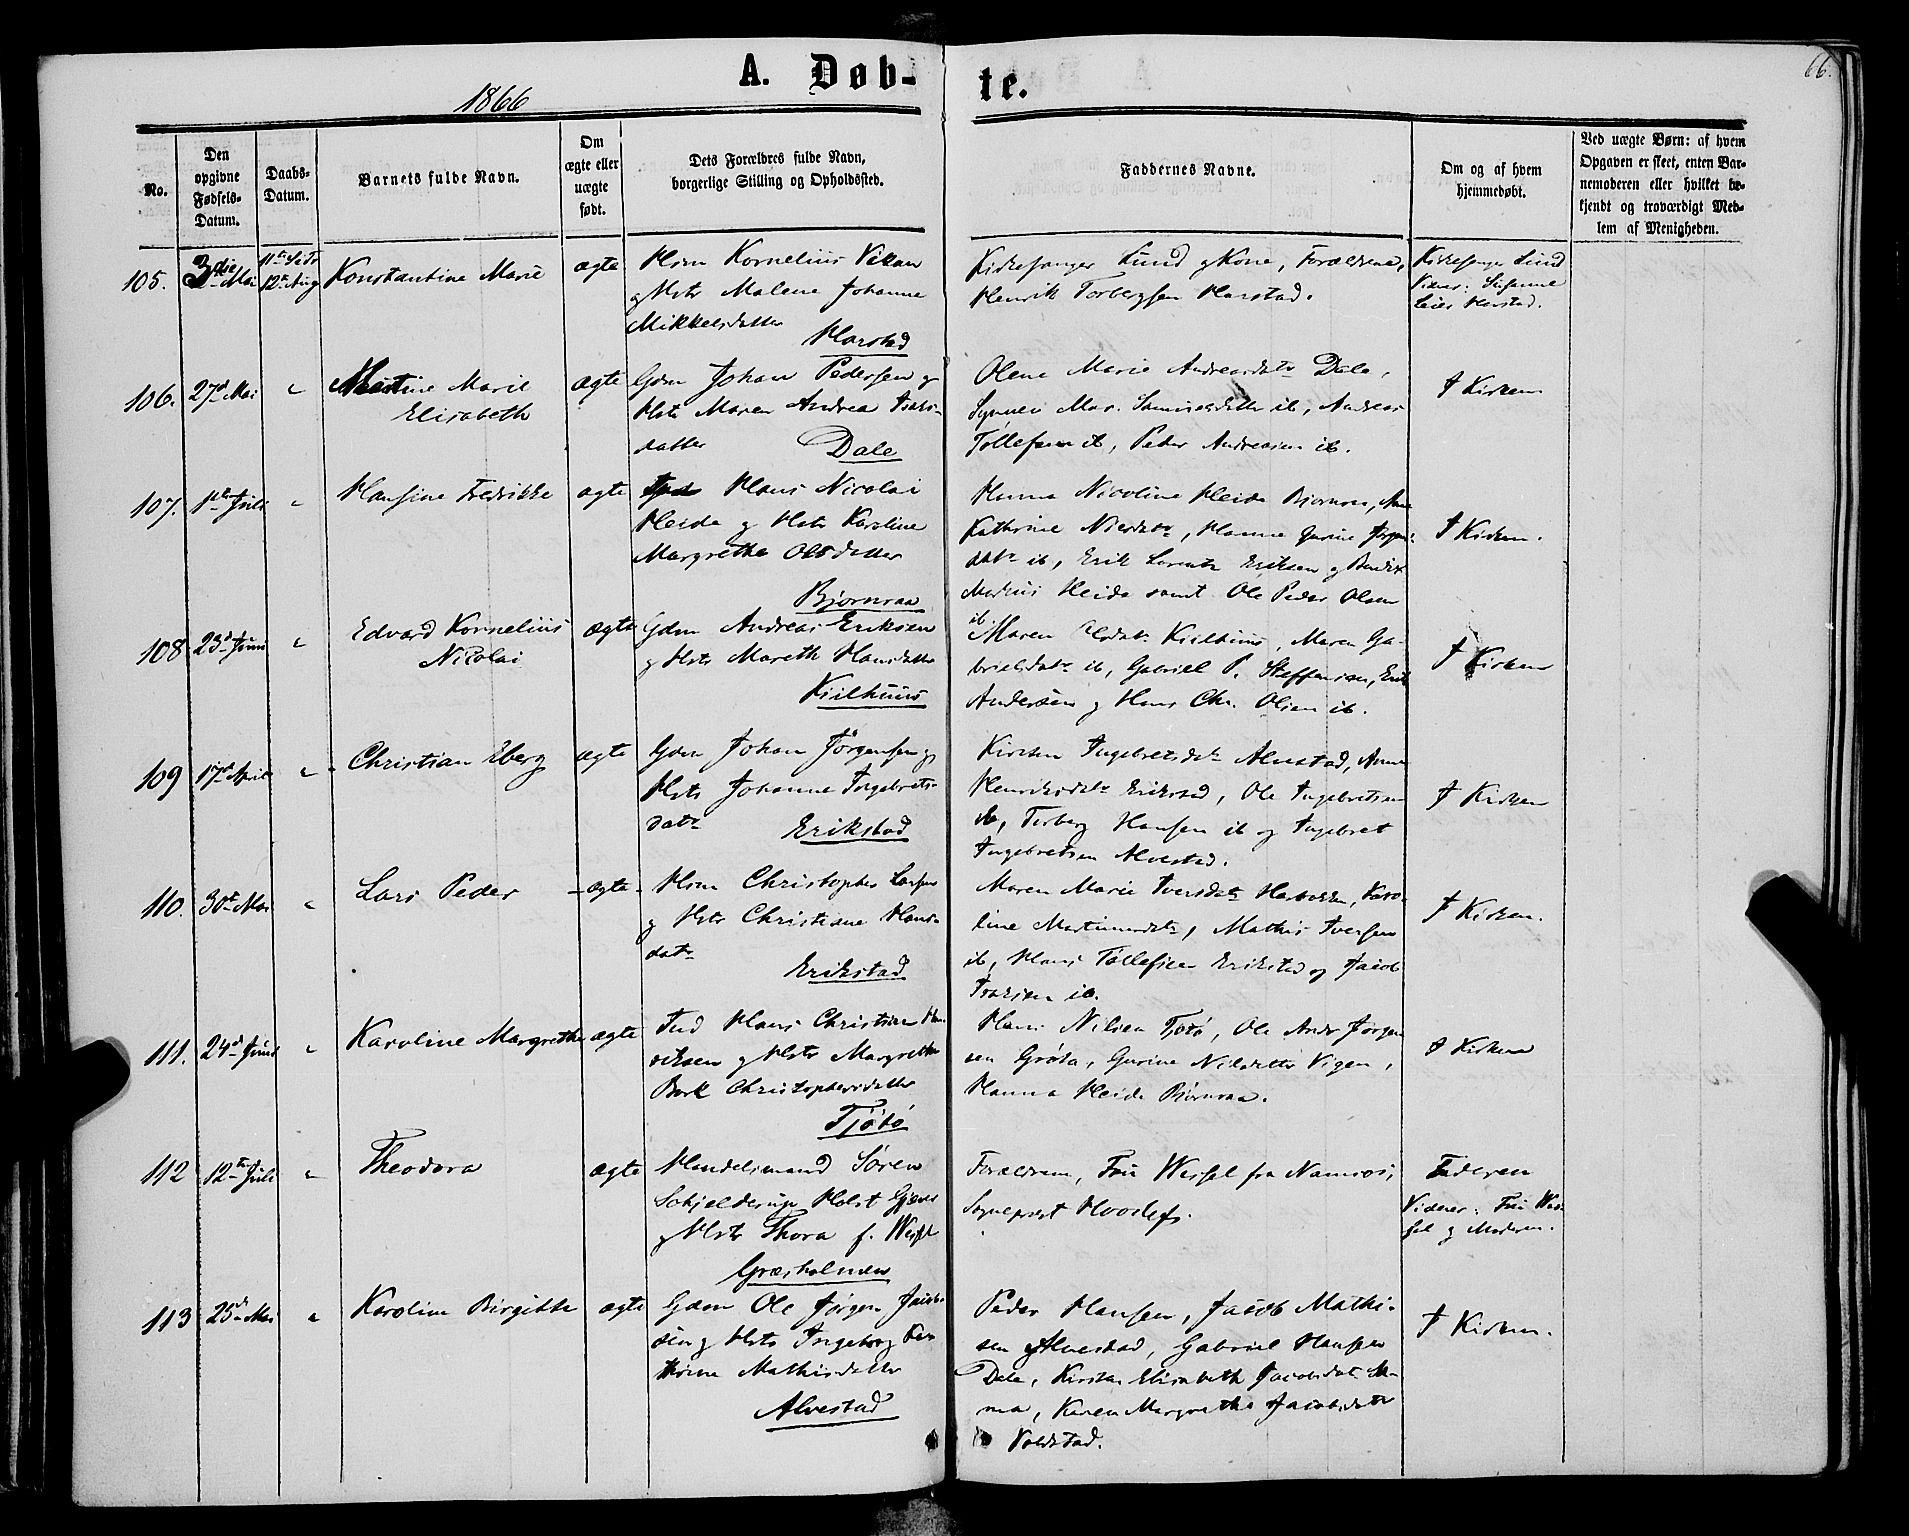 66.
A. Døb- te.
1866
No.
Den opgivne Fødsels-Datum.
Daabs-Datum.
Barnets fulde Navn.
Om ægte eller uægte født.
Dets Forældres fulde Navn, borgerlige Stilling og Opholdssted.
Faddernes Navne.
Om og af hvem hjemmedøbt.
Ved uægte Børn: af hvem Opgaven er skeet, enten Barnemoderen eller hvilket bekjendt og troværdigt Medlem af Menigheden.
105. 3die Mai 12te Aug Konstantine Marie ægte
Hsm Kornelius Vikan
og Hstr Malene Johanne
Mikkelsdatter
Harstad
Kirkesanger Lund og Kone, Forældrene,
Henrik Torbergsen Harstad.
Kirkesanger Lund
Vidner: Susanne
Harstad.
106. 27d Mai " Marie
Elisabeth
ægte
Gdm Johan Pedersen og
Hstr Maren Andrea Isaks-
datter
Dale
Olene Marie Andreasdtr Dale,
Mar. ib, Andreas
Tollefsen ib, Peder Andreasen ib.
I Kirken
107. 1ste Juli " Hansine Fredrikke ægte
Hans Nicolai
Heide og Hstr Karoline
Margrethe Olsdatter
Bjørnraa
Hanna Nicoline Heide Bjørnraa,
Kathrine, Hanne Gurine
datr ib, Erik Lorentz Eriksen og
Markus Heide samt Ole Peder Olsen
ib.
I Kirken.
108 23d Juni " Edvard Kornelius
Nicolai
ægte
Gdm Andreas Eriksen
og Hstr Mareth Hansdatter
Kiilhuus
Maren Kiilhuus, Maren Ga-
brielsdatr ib, Gabriel P. Steffensen, Erik
Andersen og Hans Chr. Olsen ib.
I Kirken
109 17d April " Christian Eberg ægte
Gdm Johan Jørgensen og
Hstr Johanne Ingebrets-
datr
Erikstad
Kirsten Ingebretsdtr Alvestad, Anne
Henriksdatr Erikstad, Ole Ingebretsen
ib, Torberg Hansen ib og Ingebret
Ingebretsen Alvestad.
I Kirken
110. 30te Mai " Lars Peder ægte
Hsm Christopher Larsen
og Hstr Christiane Hans-
datr
Erikstad
Maren Marie Iversdatr, Karo-
line Martinusdatr, Mathis Iversen
ib, Hans Tollefsen Erikstad og Jacob
Isaksen ib.
I Kirken.
111. 24d Juni " Karoline Margrethe ægte
Ind Hans Christian Hen-
riksen og Hstr Margrethe
Bork Christophersdatter
Tjøtø
Hans Nilsen Tjøtø, Ole Andr Jørgen-
sen Grøta, Gurine Nilsdatter Vigen,
Hanna Heide Bjørnraa.
I Kirken
112 12te Juli " Theodora ægte
Handelsmand Søren
Schjelderup Holst
og Hstr Thora f. Wessel
Græsholmen
Forældrene, Fru Wessel fra Namsos,
Sogneprest
Faderen
Vidner: Fru Wes-
sel og Moderen.
113 25d Mai " Karoline Birgitte ægte
Gdm Ole Jørgen Jacob-
sen og Hstr Ingeborg Ka-
thrine Mathisdatter
Alvestad
Peder Hansen, Jacob Mathi-
sen Alvestad, Gabriel Hansen
Dale, Kirsten Elisabeth Jacobsdatr
Karen Margrethe Jacobsdatr
Voldstad.
I Kirken.